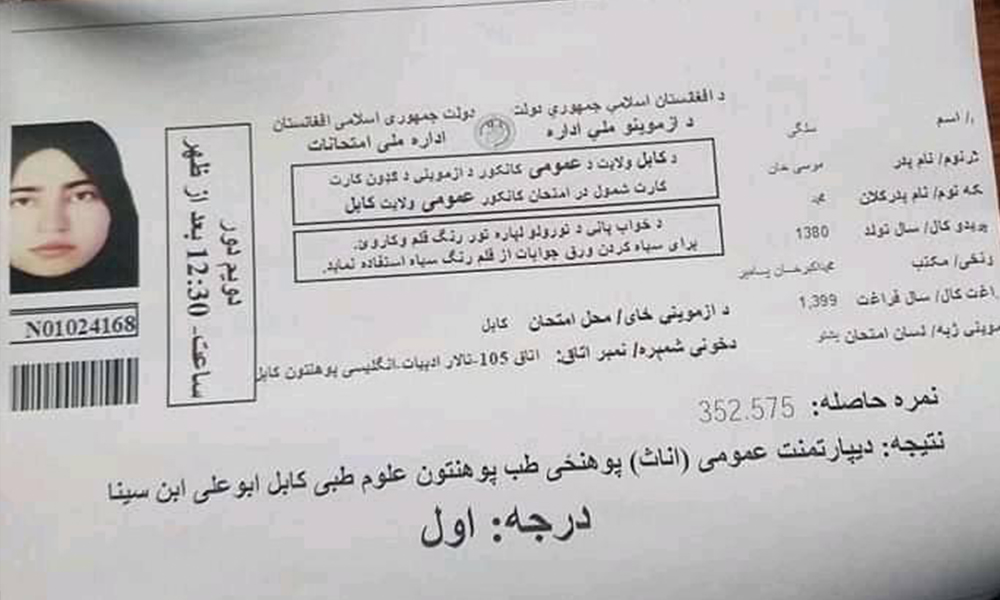 د افغانستان اسلامي جمهوري دولت
دولت جمهوری اسلامی افغانستان
د ازموینو ملي اداره
اداره ملی امتحانات
د کابل ولایت د عمومی کانکور د ازموینی د ګډون کارت
کارت شمول در امتحان کانکور عمومی ولایت کابل
د خواب پانی د تورولو لپاره تور رنگ قلم وکاروئ.
برای سیاه کردن ورق جوابات از قلم رنگ سیاه استفاده نماید.
/ اسم
نوم/ نام پدر موسی خان
که نوم/ نام پدرکلان
یدو کال/ سال تولد 1380
/ مکتب
اغت کال/ سال فراغت 1,399
موینی ژبه/ لسان امتحان پشتو
د ازموینی خای/ محل امتحان کابل
دخونی شمیره/ نمبر اتاق: اتاق 105-تالار ادبیات-انگلیسی پوهنتون کابل
دویم نور
ساعت- 12:30 بعد از ظهر
N01024168
نمره حاصله: 352.575
نتیجه: دیپارتمنت عمومی (اناث) پوهنځی طب پوهنتون علوم طبی کابل ابو علی ابن سینا
درجه: اول